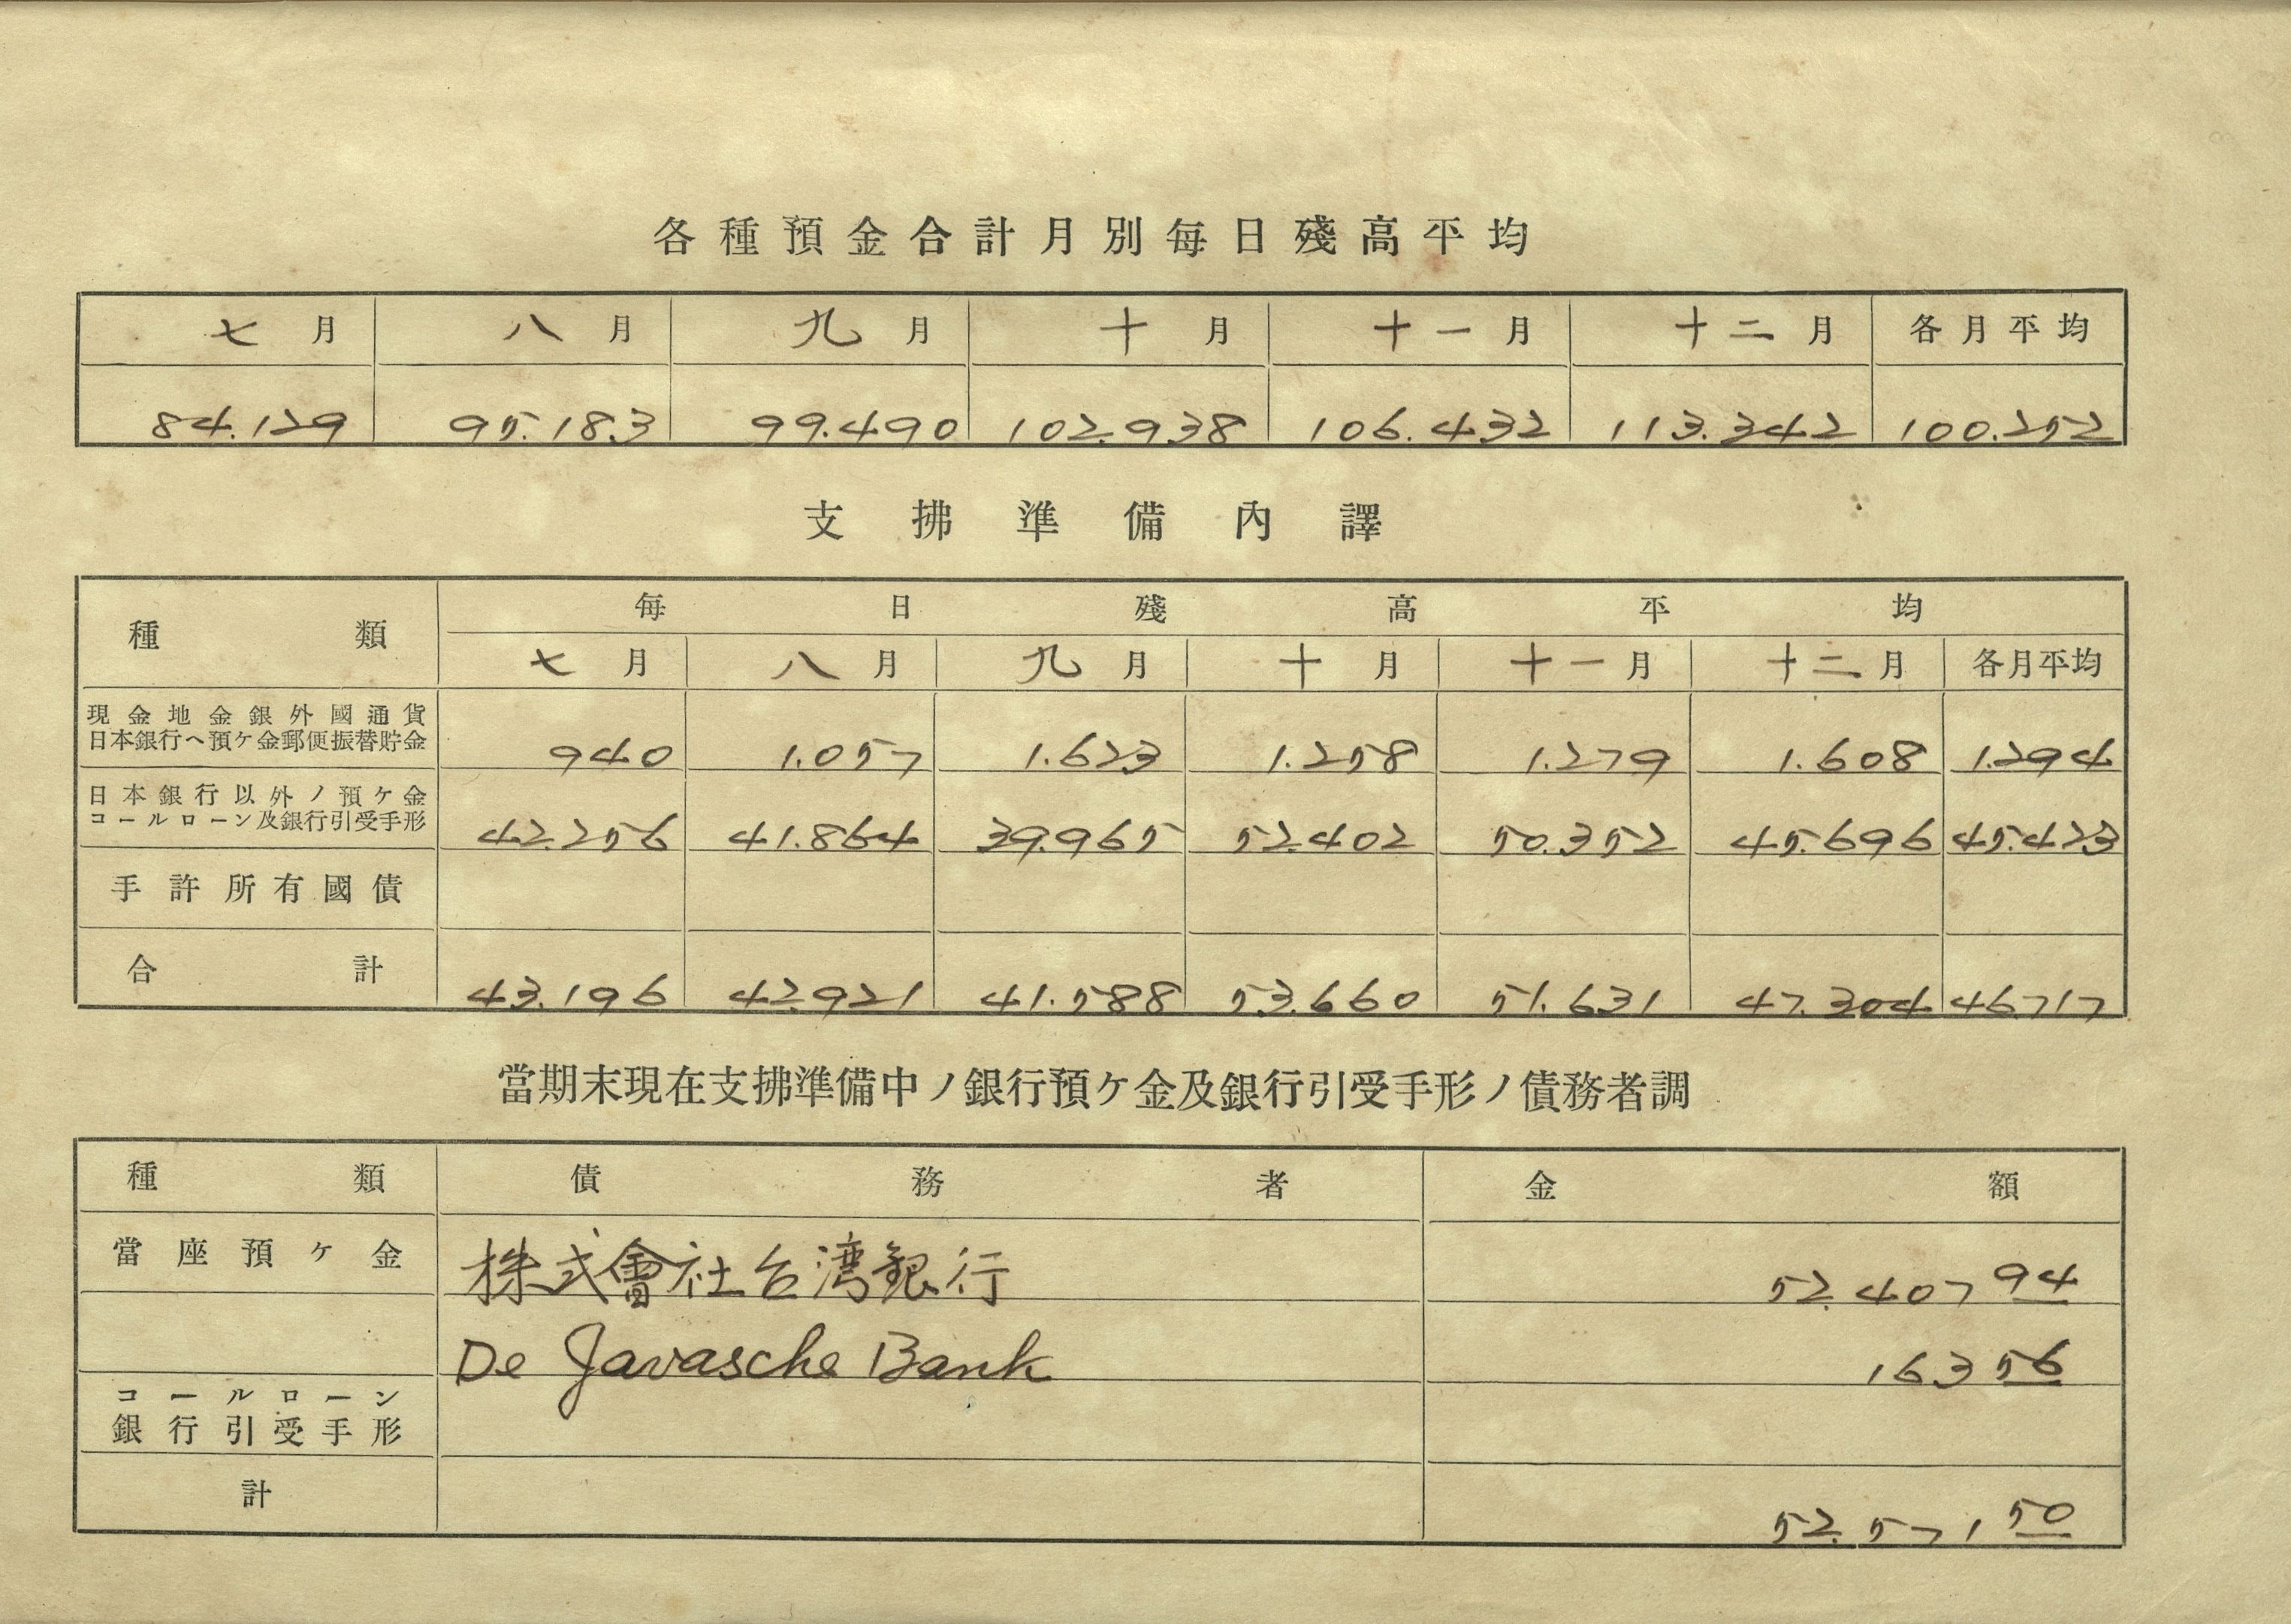 各種預金合計月別每日殘高平均
七月 八月 九月 十月 十一月 十二月 各月平均
84.129 95.183 99.490 102.938 106.432 113.342 100.252
支拂準備內譯
種類 每日殘高平均
七月 八月 九月 十月 十一月 十二月 各月平均
現金地金銀外國通貨
日本銀行ヘ預ケ金郵便振替貯金 940 1.057 1.623 1.258 1.279 1.608 1.294
日本銀行以外ノ預ケ金
コールローン及銀行引受手形 42.256 41.864 39.965 52.402 50.352 45.696 45.423
手許所有國債
合計 43.196 42.921 41.588 53.660 51.631 47.304 46.717
當期末現在支拂準備中ノ銀行預ケ金及銀行引受手形ノ債務者調
種類 債務者 金額
當座預ケ金 株式會社台湾銀行 52.407 94
De Javasche Bank 163 56
コールローン
銀行引受手形
計 52.571 50